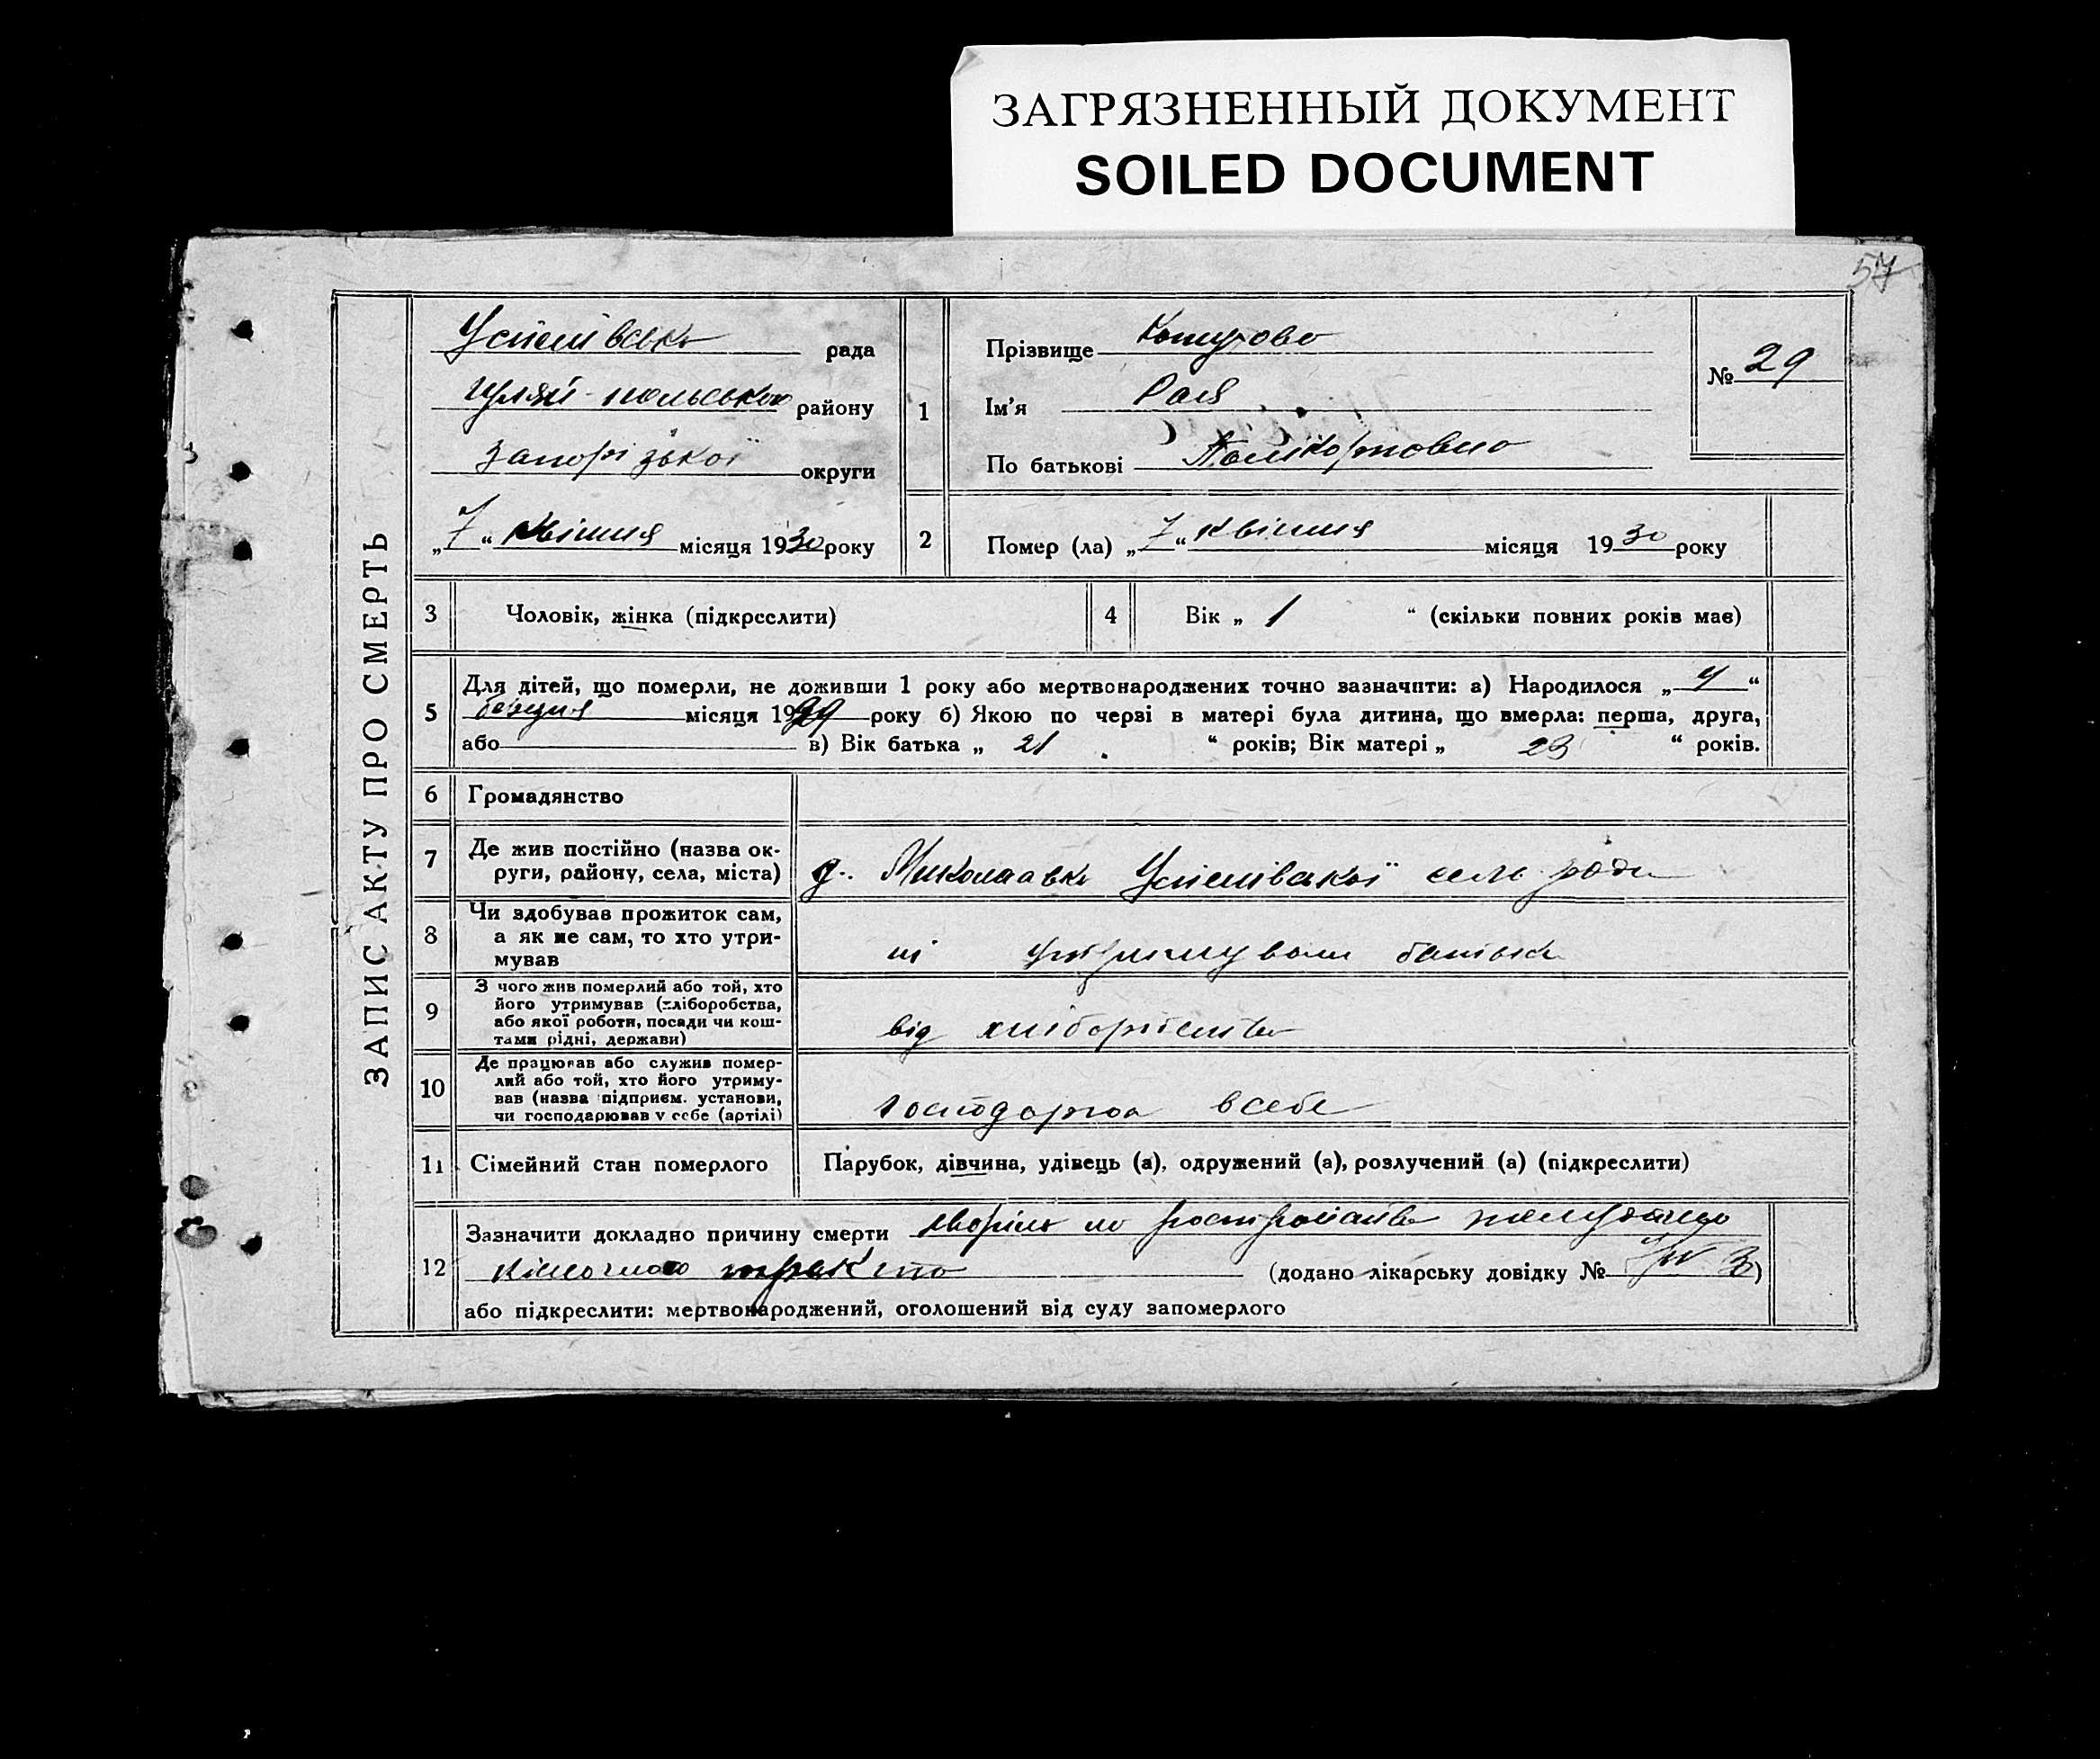 ЗАГРЯЗНЕННЫЙ ДОКУМЕНТ
SOILED DOCUMENT
57
ЗАПИС АКТУ ПРО СМЕРТЬ
Успенівська рада
Гуляй-польського району
Запорізької округи
„7“ квітня місяця 1930 року
1
Прізвище
Ім'я Рая
По батькові
№ 29
2
Помер (ла) „7“ квітня місяця 1930 року
3 Чоловік, жінка (підкреслити)
4 Вік „ 1 “ (скільки повних років має)
5 Для дітей, що померли, не доживши 1 року або мертвонароджених точно зазначити: а) Народилося „ “
місяця 1929 року б) Якою по черві в матері була дитина, що вмерла: перша, друга,
або в) Вік батька „ 21 “ років; Вік матері „ 23 “ років.
6 Громадянство
7 Де жив постійно (назва ок-
руги, району, села, міста)
Миколаавка Успенівської сель ради
8 Чи здобував прожиток сам,
а як не сам, то хто утри-
мував
ні утримували батька
9 З чого жив померлий або той, хто
його утримував (хліборобства,
або якої роботи, посади чи кош-
тами рідні, держави)
від хліборобства
10 Де працював або служив помер-
лий або той, хто його утриму-
вав (назва підприєм. установи,
чи господарював у себе (артілі)
в себе
11 Сімейний стан померлого
Парубок, дівчина, удівець (а), одружений (а), розлучений (а) (підкреслити)
12 Зазначити докладно причину смерти
(додано лікарську довідку № )
або підкреслити: мертвонароджений, оголошений від суду запомерлого